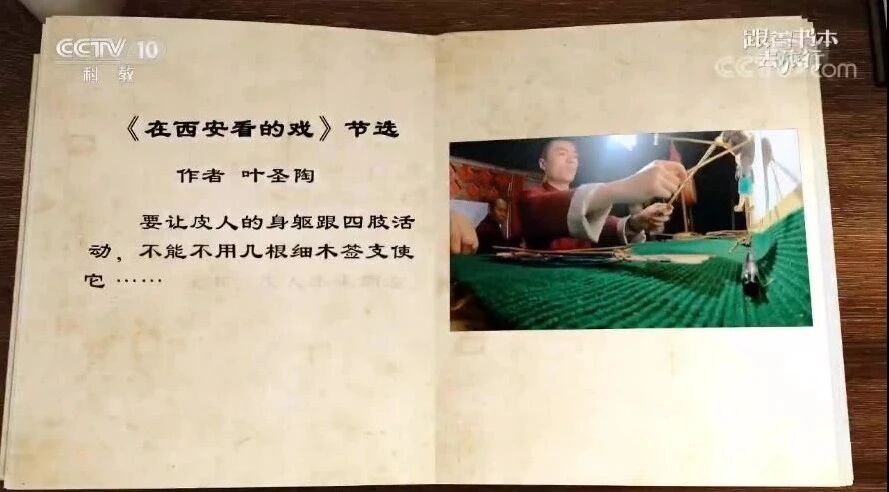 CCTV 10
科教
跟着书本
去旅行
CCTV.com
《在西安看的戏》节选
作者 叶圣陶
要让皮人的身躯跟四肢活
动，不能不用几根细木签支使
它……